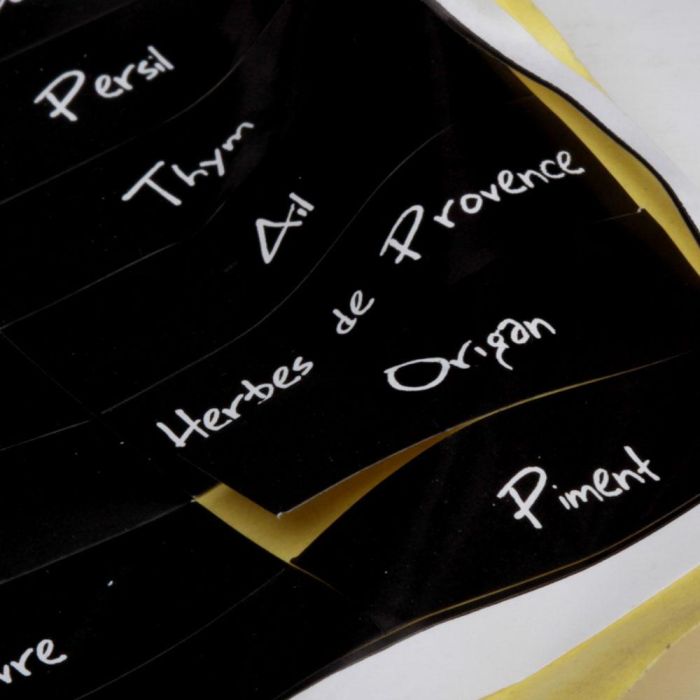 Persil
Thym
Ail
Herbes de Provence
Origan
Piment